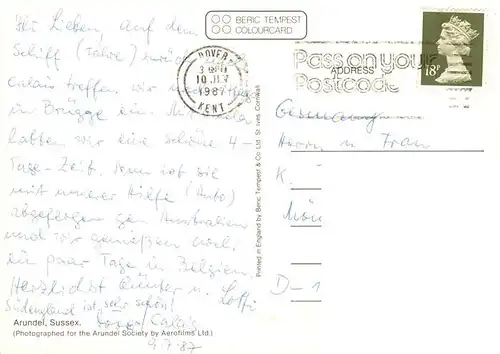 BERIC TEMPEST
COLOURCARD
Ihr Lieben, auf dem
Schiff (Fähre) zurück
Calais treffen wir
in Brügge ein.
hatten wir eine schöne 4-
Tage-Zeit. Nun ist sie
mit unserer Hilfe (Auto)
abgeflogen gen Australien
und wir genießen noch
ein paar Tage in Belgien.
Herzlichst Günter u. Lotti
Südengland ist sehr schön!
Calais
9.7.87
Arundel, Sussex.
(Photographed for the Arundel Society by Aerofilms Ltd.)
Printed in England by Beric Tempest & Co Ltd. St. Ives Cornwall
DOVER
10 JLY
1987
KENT
Pass on your
Postcode
ADDRESS
18P
Germany
Herrn u Frau
K.
Mön
D-1